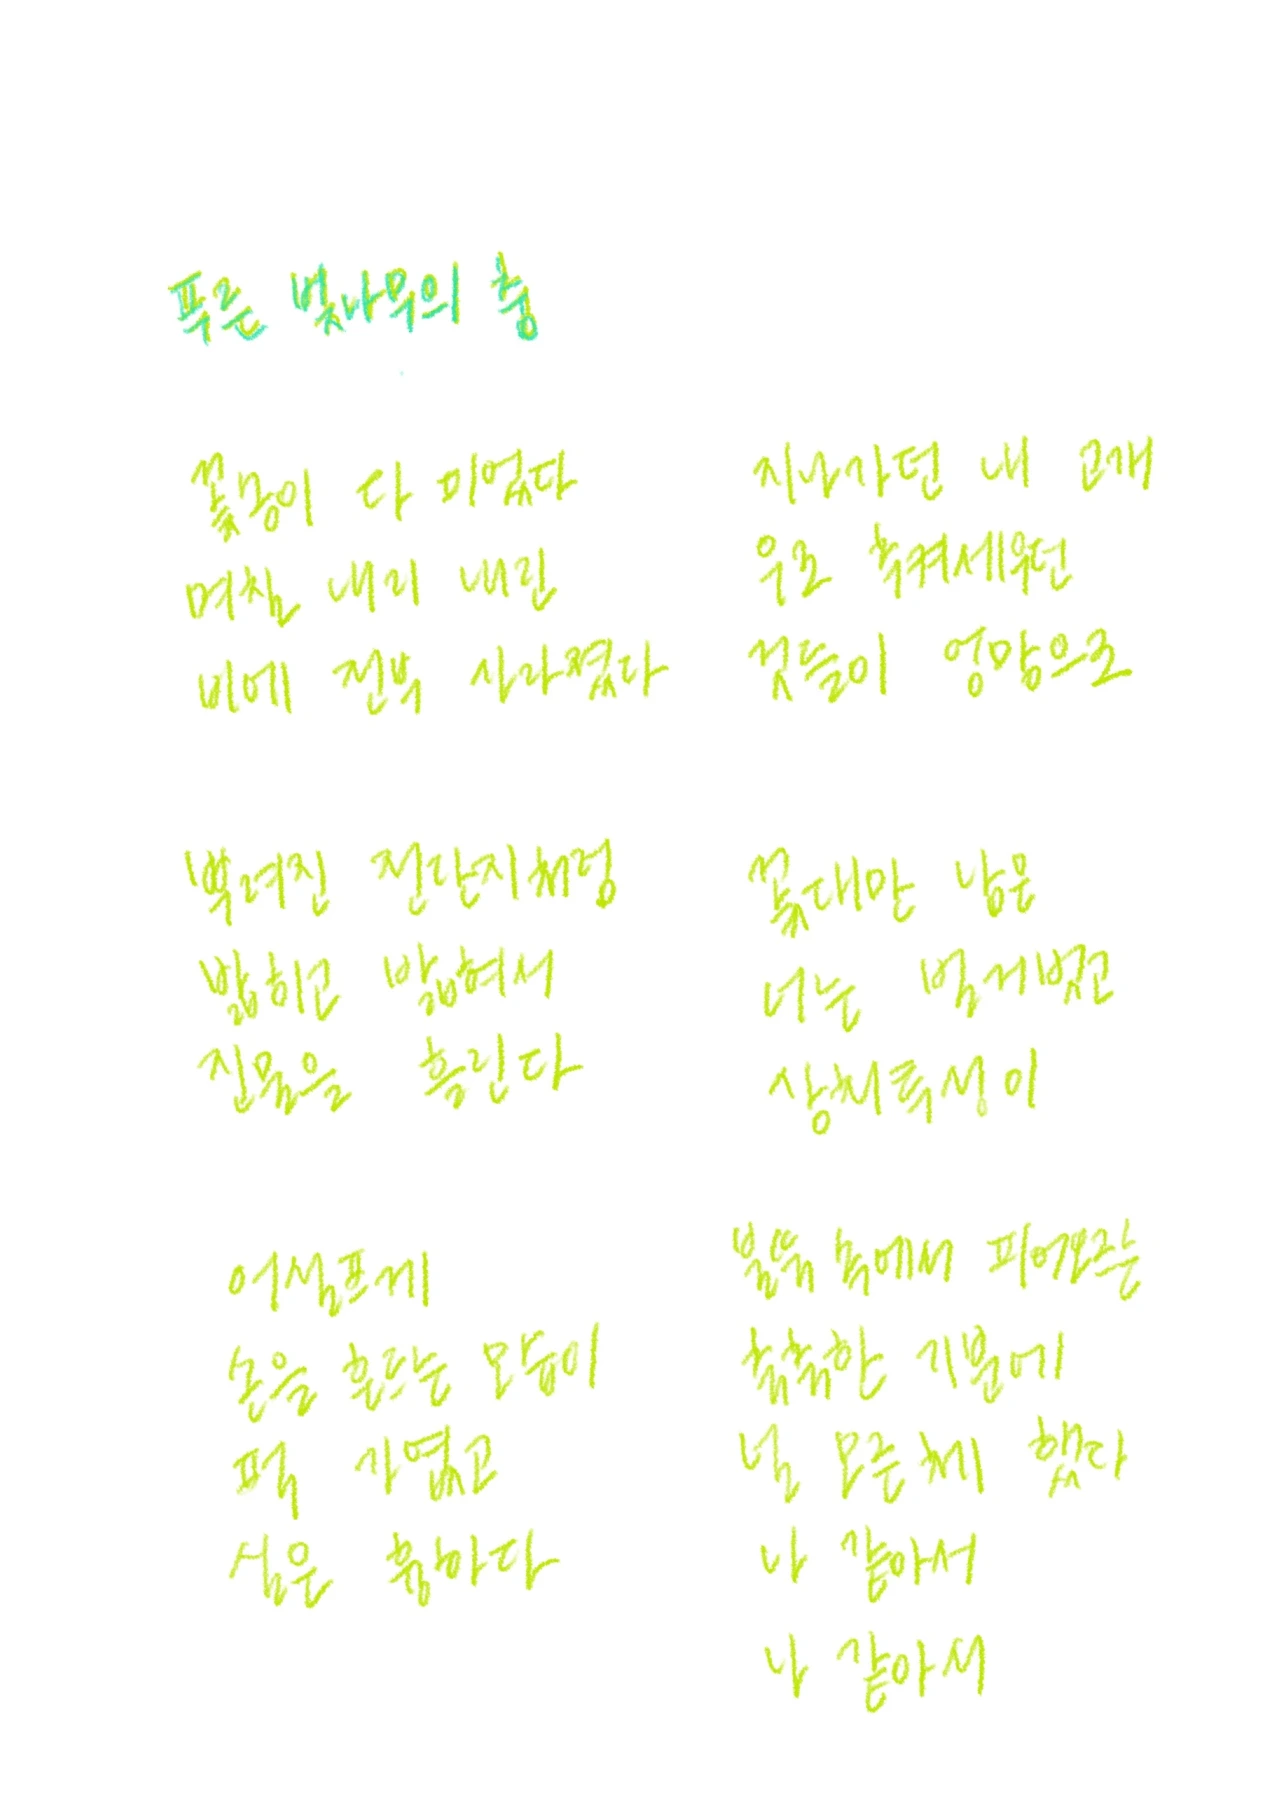 푸른 벚나무의 충
꽃몽이 다 미었다
며칠 내리 내린
비에 전부 사라졌다
뿌려진 전단지처럼
밟히고 밟혀서
진물을 흘린다
어설프게
손을 흔드는 모습이
퍽 가엾고
실은 흉하다
지나가던 내 고개
우로 추켜세우던
것들이 엉망으로
꽃대만 남은
너는 벌거벗고
상처투성이
불뚝 속에서 피어오르는
축축한 기분에
널 모른체 했다
나 같아서
나 같아서